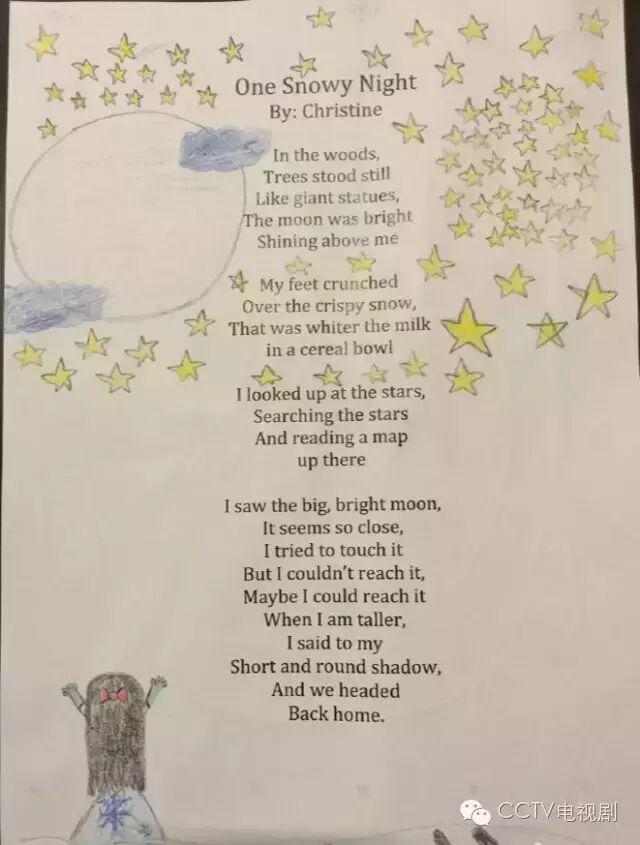 One Snowy Night
By: Christine
In the woods,
Trees stood still
Like giant statues,
The moon was bright
Shining above me
My feet crunched
Over the crispy snow,
That was whiter the milk
in a cereal bowl
I looked up at the stars,
Searching the stars
And reading a map
up there
I saw the big, bright moon,
It seems so close,
I tried to touch it
But I couldn't reach it,
Maybe I could reach it
When I am taller,
I said to my
Short and round shadow,
And we headed
Back home.
CCTV电视剧